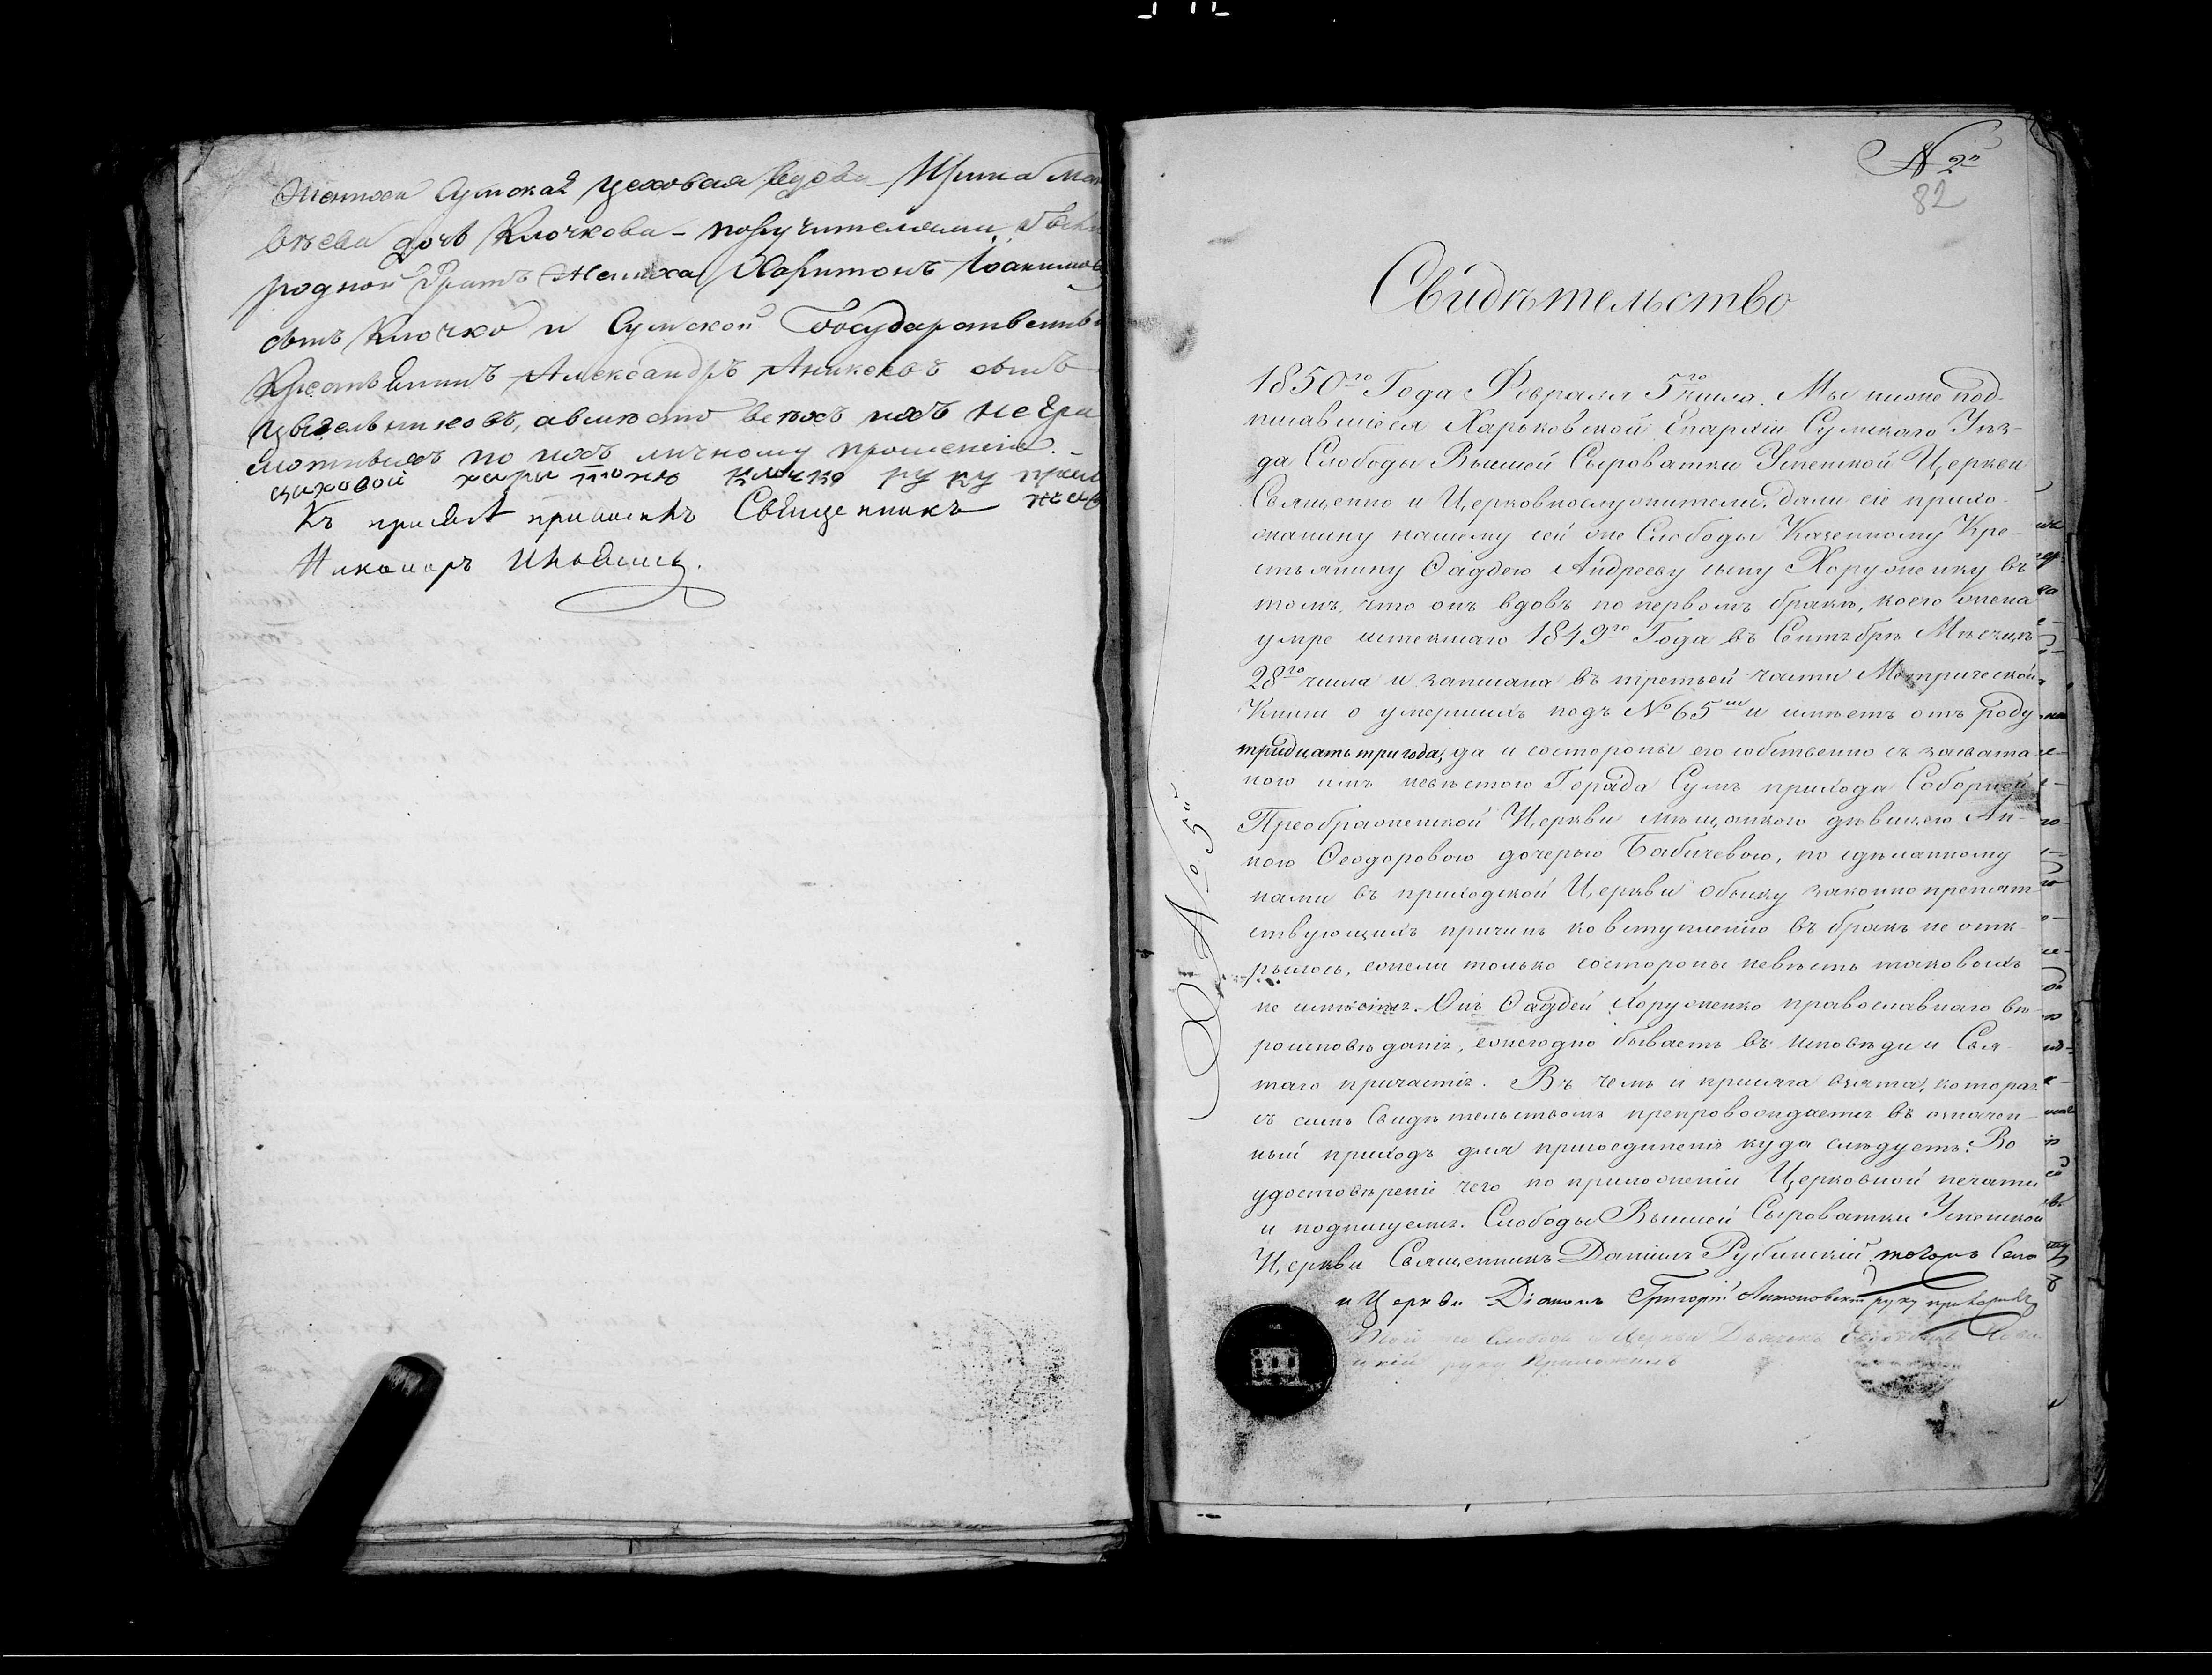 Сумская цеховая вдова Ирина Мат
вѣева дочь Клочкова - поручителями:
родной Братъ Жениха Харитонъ Іоакимовъ
сынъ Клочко и Сумской Государственный
Крестьянинъ Александръ Аникеевъ сынъ
а вмѣсто всѣхъ ихъ не гра
мотныхъ по ихъ личному прошенію
цаховой харитонъ клочко руку прил
Къ присягѣ приводилъ Священникъ
Никаноръ
N 2й
82
Свидѣтельство
1850го Года Февраля 5го числа. Мы ниже под-
писавшіеся Харьковской Епархіи Сумскаго Уѣз-
да Слободы Вышей Сыроватки Успенской Церкви
Священно и Церковнослужители, дали сіе прихо-
жанину нашему сей же Слободы Казенному Кре-
стьянину Фаддею Андрееву сыну Хоруженку въ
томъ, что онъ вдовъ по первомъ бракѣ, коего жена
умре истекшаго 1849го Года въ Сентябрѣ Мѣсяцѣ
28го числа и записана въ третьей части Метрической
Книги о умершихъ подъ №65мъ и имѣетъ отъ роду
тридцать три года, да и состороны его собственно съ засвата-
ною имъ невѣстою Горада Сумъ прихода Соборной
Преображенской Церкви мѣщанкою дѣвицею Ан-
ною Феодоровою дочерью Бабичевою, по сдѣланному
нами въ приходской Церкви обыску законно препят-
ствующихъ причинъ ко вступленію въ бракъ не отк-
рылось, ежели только состороны невѣсты таковыхъ
не имѣется. Онъ Фаддей Хоруженко православнаго вѣ-
роисповѣданія, ежегодно бываетъ въ исповѣди и Свя-
таго причастія. Въ чемъ и присяга взята, которая
съ симъ Свидѣтельствомъ препровождается въ означен-
ный приходъ для присоединенія куда слѣдуетъ: Во
удостовѣреніе чего по приложеніи Церковной печати
и подпишемся. Слободы Вышей Сыроватки Успенской
Церкви Священникъ Даніилъ Рубинскій тогожъ Села
и Церкви Діаконъ Григорій Антоновскій руку приложилъ
Той же Слободы и Церкви Дьячекъ
руку приложилъ
№ 5й